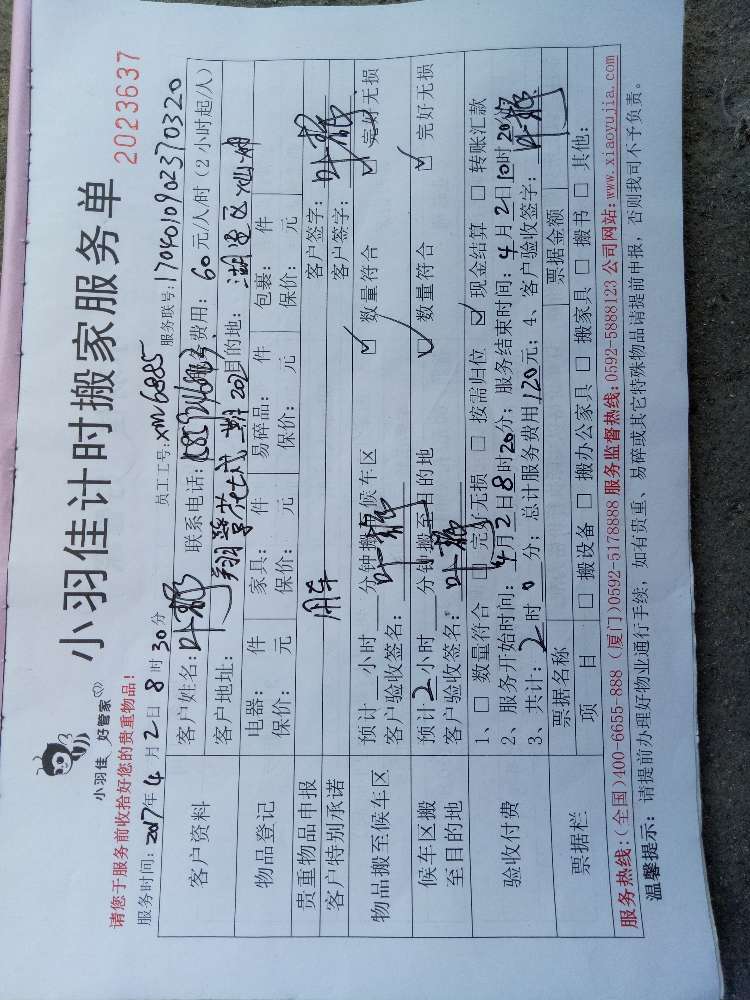 小羽佳 好管家
小羽佳计时搬家服务单
2023637
请您于服务前收拾好您的贵重物品!
服务时间: 2017年 4 月 2 日 8 时 30 分 员工工号: xm6885 服务联号: 170401090237032​0
客户资料
客户姓名: 叶 联系电话: 服务费用: 60 元/人/时 (2 小时起/人)
客户地址: 翔 目的地: 湖 区
物品登记
电器: 件 家具: 件 易碎品: 件 包裹: 件
保价: 元 保价: 元 保价: 元 保价: 元
贵重物品申报 客户签字:
客户特别承诺 用车 客户签字: 叶
物品搬至候车区
预计 小时 分钟搬至候车区 ☑ 数量符合 ☑ 完好无损
客户验收签名: 叶
候车区搬至目的地
预计 2 小时 分钟搬至目的地 ☑ 数量符合 ☑ 完好无损
客户验收签名: 叶
验收付费
1、□ 数量符合 □ 完好无损 □ 按需归位 ☑ 现金结算 □ 转账汇款
2、服务开始时间: 4月 2 日 8 时 20分; 服务结束时间: 4 月 2 日 10 时 20分
3、共计: 2 时 0 分; 总计服务费用 120 元; 4、客户验收签字: 叶
票据栏
票据名称 票据金额
项 目 □ 搬设备 □ 搬办公家具 □ 搬家具 □ 搬书 □ 其他:
服务热线: (全国)400-6655-888 (厦门)0592-5178888 服务监督热线: 0592-5888123 公司网站: www.xiaoyujia.com
温馨提示: 请提前办理好物业通行手续, 如有贵重、易碎或其它特殊物品请提前申报, 否则我司不予负责。